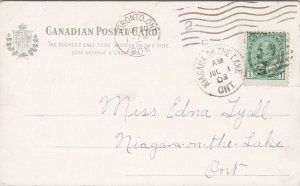 CANADIAN POSTAL CARD
THE ADDRESS ONLY TO BE WRITTEN ON THIS SIDE.
CÔTÉ RÉSERVÉ À L'ADRESSE
TORONTO, ONT.
2
NIAGARA ON THE LAKE
AM
JUL 1
08
ONT.
Miss Edna Tyall.
Niagara-on-the-Lake
Ont.